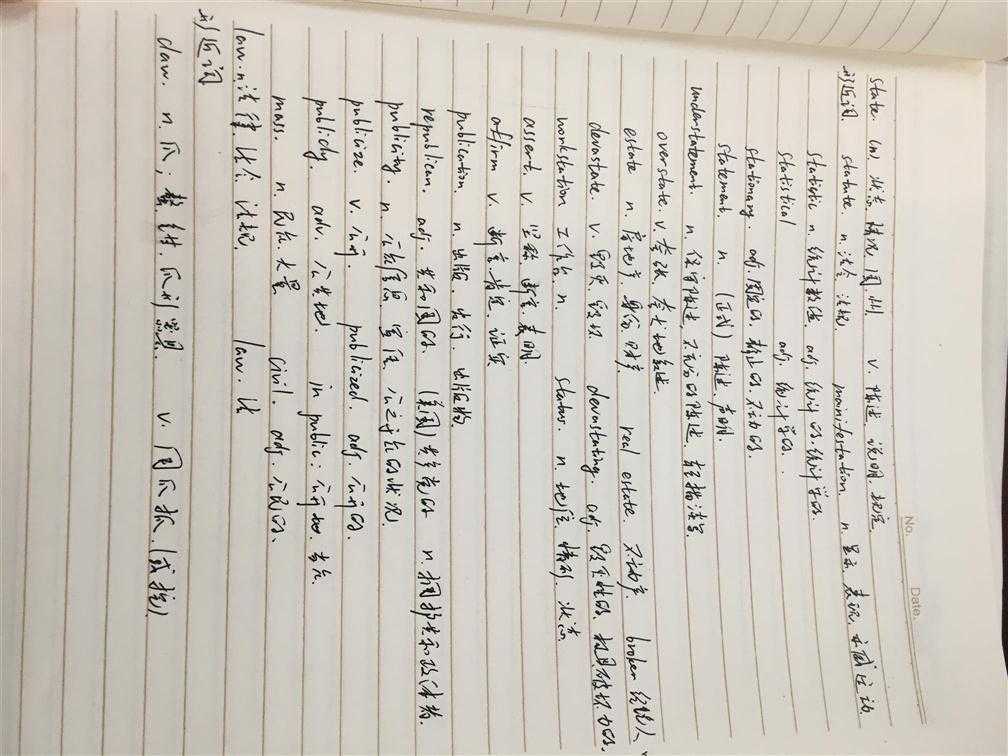 No.
Date.
state. (n). 状态. 情况. 国. 州. v. 陈述. 说明. 规定
形近词 statute. n. 法令. 法规 manifestation n. 显示. 表现. 示威运动
statistic n. 统计数值. adj. 统计的. 统计学的.
statistical adj. 统计学的.
stationary. adj. 固定的. 静止的. 不动的.
statement. n. (正式) 陈述. 声明.
understatement. n. 保守陈述. 不充分的陈述. 轻描淡写
overstate. v. 夸张. 夸大地叙述.
estate n. 房地产. 身份. 财产 real estate. 不动产 broken 经纪人
devastate. v. 毁灭. 毁坏 devastating. adj. 毁灭性的. 极具破坏力的.
workstation 工作台. n. status. n. 地位. 情形. 状态
assert. v. 坚称. 断言. 表明.
affirm v. 断言. 肯定. 证实
publication n. 出版. 发行. 出版物
republican. adj. 共和国的. (美国) 共和党的 n. 拥护共和政体者.
publicity. n. 公众信息. 宣传. 公之于众的状况.
publicize. v. 公布. publicized. adj. 公布的.
publicly. adv. 公共地. in public: 公开地. 当众.
mass. n. 民众. 大量 civil. adj. 公民的.
law. n. 法律. 法令. 法规. law. 法
形近词
claw. n. 爪; 螯. 钳. 爪形器具. v. 用爪抓. (或挖)